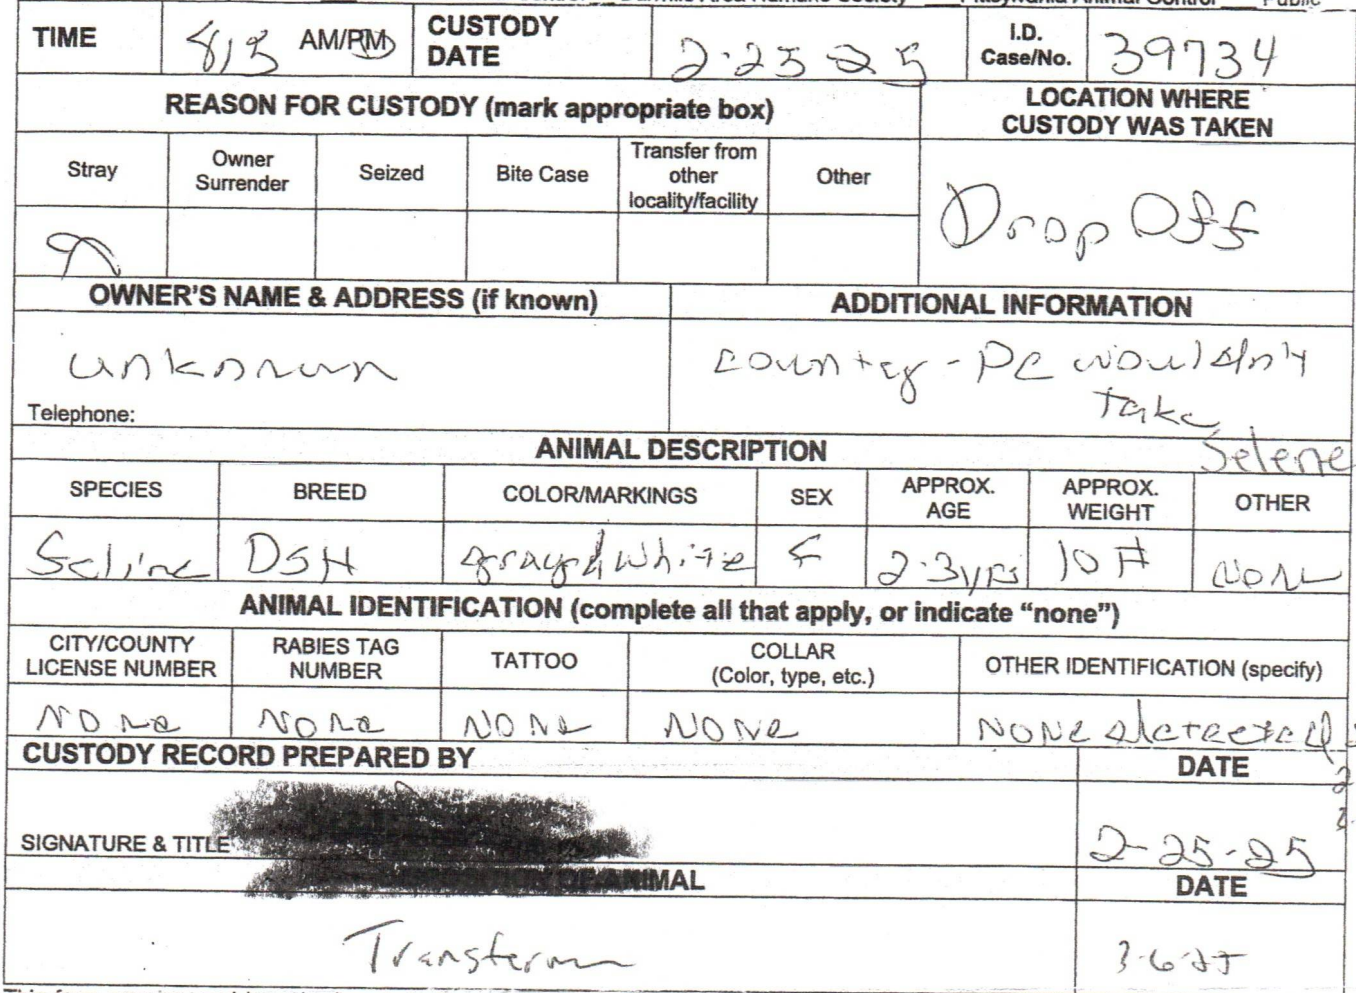 Danville Area Humane Society Pittsylvania Animal Control Public
TIME 8,15 AM/PM CUSTODY DATE 2-25-25 I.D. Case/No. 39734
REASON FOR CUSTODY (mark appropriate box) LOCATION WHERE CUSTODY WAS TAKEN
Stray Owner Surrender Seized Bite Case Transfer from other locality/facility Other
Drop Off
OWNER'S NAME & ADDRESS (if known) ADDITIONAL INFORMATION
unknown county - PC wouldn't
take
Telephone:
ANIMAL DESCRIPTION Selene
SPECIES BREED COLOR/MARKINGS SEX APPROX. AGE APPROX. WEIGHT OTHER
Feline DSH gray & white F 2-3yrs 10 # None
ANIMAL IDENTIFICATION (complete all that apply, or indicate “none”)
CITY/COUNTY LICENSE NUMBER RABIES TAG NUMBER TATTOO COLLAR (Color, type, etc.) OTHER IDENTIFICATION (specify)
None None None None None detected
CUSTODY RECORD PREPARED BY DATE
SIGNATURE & TITLE 2-25-25
OF ANIMAL DATE
Transfer 3-6-25